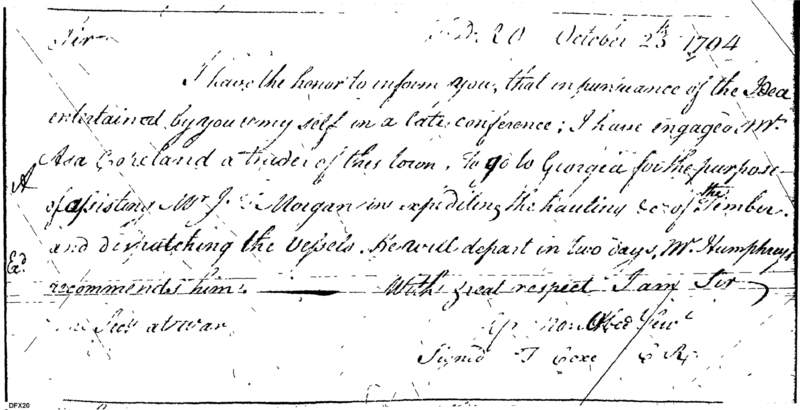 Sir October 23th 1794
I have the honor to inform you, that in pursuance of the Idea
entertained by you & my self in a late conference; I have engaged Mr.
Asa Copeland a trader of this town, To go to Georgia for the purpose
A of assisting Mr J Morgan in expediting the hauling &c of the Timber.
and dispatching the Vessels. He will depart in two days, Mr. Humphreys
Ed.
recommends him. With great respect I am Sir
Secy at War Yr Hon Obed Servt
Signed T Coxe C R.
DFX20